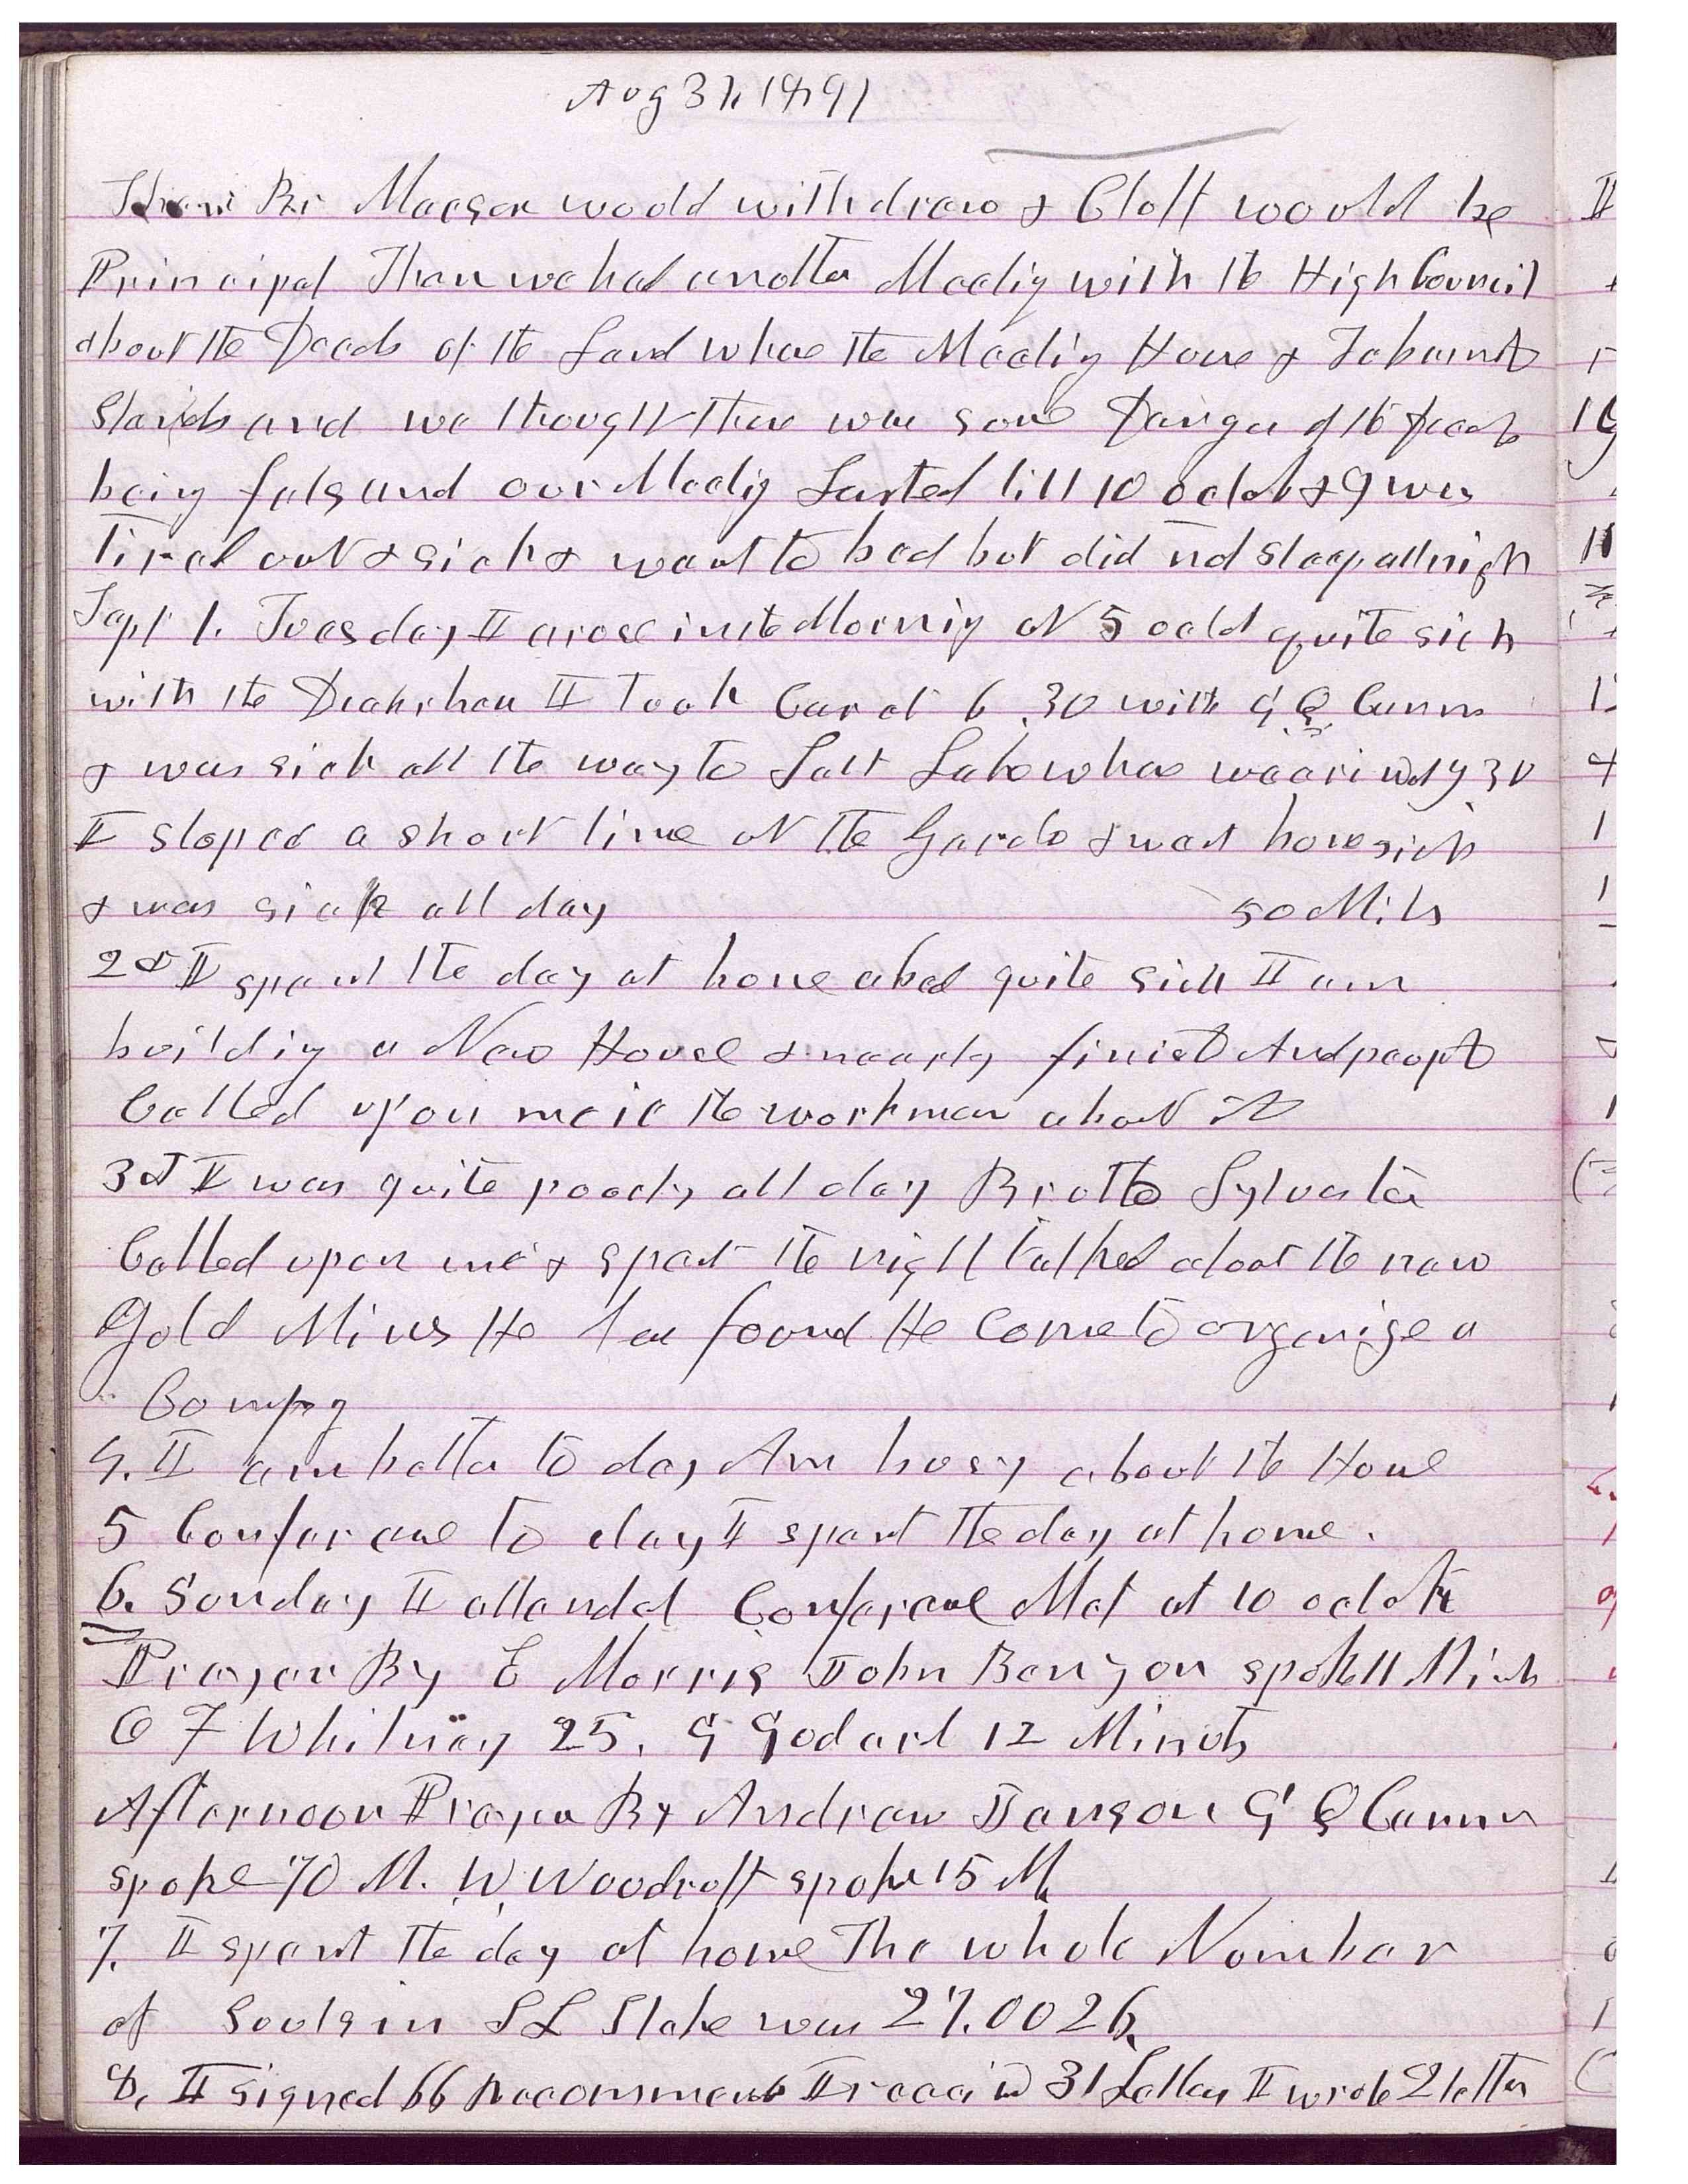 Aug 31, 1891
Then Br Maeser would withdraw & Cluff would be
Principal Then we had another Meeting with the High Council
about the Deeds of the Land whare the Meeting House & Tabernacle
Stands and we thought there was some Danger of the Deeds
being fals and our Meeting Lasted till 10 oclok & I was
tired out & sick & went to bed but did not sleep all night
Sept 1. Tuesday I arose in the Morning at 5 oclok quite sick
with the Diahrhea I took Car at 6.30 with G Q Cannon
& was sick all the way to Salt Lake whare we arived 9 30
I stoped a short time at the Gardo & went home sick
& was sick all day 50 Miles
2d I spent the day at home abed quite sick I am
building a New House & nearly finished And people
Called upon me & the workmen about it
3d I was quite poorly all day Brother Sylvester
Called upon me & spent the night talked about the new
Gold Mines He has found He Come to organize a
Company
4. I am better to day Am busy about the House
5 Conferance to day I spent the day at home.
6. Sunday I attended Conferance Met at 10 oclok
Prayer By E Morris John Benyon spoke 11 Minuts
O F Whitney 25, G Godard 12 Minuts
Afternoon Prayer By Andrew Jenson G Q Cannon
spoke 70 M. W Woodruff spoke 15 M
7. I spent the day at home The whole Number
of Souls in S L Stake was 27.0026
8, I signed 66 Recommends I receivd 31 Letters I wrote 2 letters